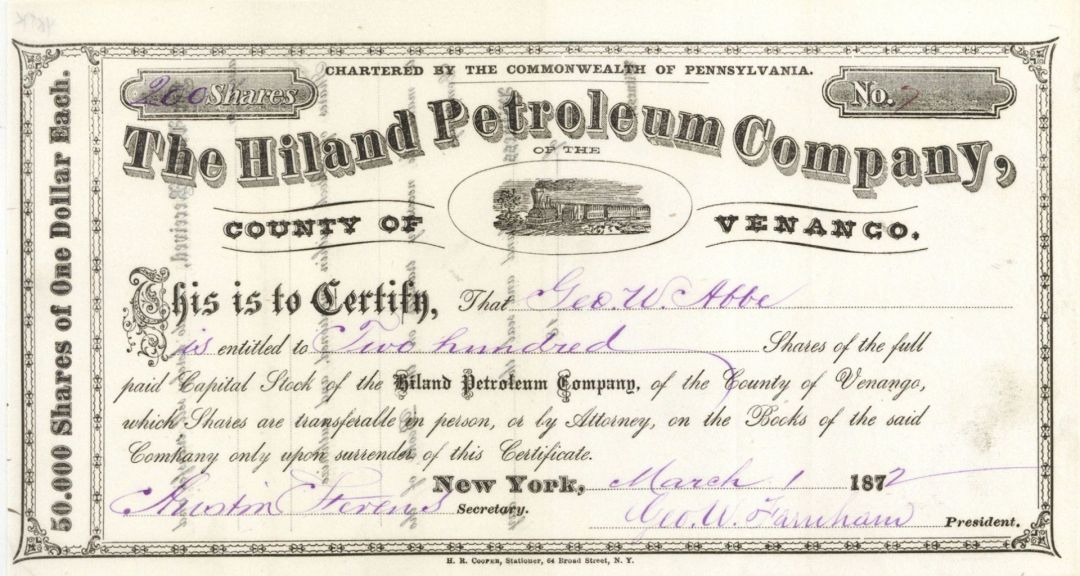 CHARTERED BY THE COMMONWEALTH OF PENNSYLVANIA.
200 Shares
No. 7
The Hiland Petroleum Company,
OF THE
COUNTY OF VENANCO.
50.000 Shares of One Dollar Each.
This is to Certify, That Geo. W. Abbe
is entitled to Two hundred Shares of the full
paid Capital Stock of the Hiland Petroleum Company, of the County of Venango,
which Shares are transferable in person, or by Attorney, on the Books of the said
Company only upon surrender of this Certificate.
New York, March 1 1872
Austin Stevens Secretary.
Geo. W. Farnham President.
H. R. COOPER, Stationer, 64 Broad Street, N. Y.